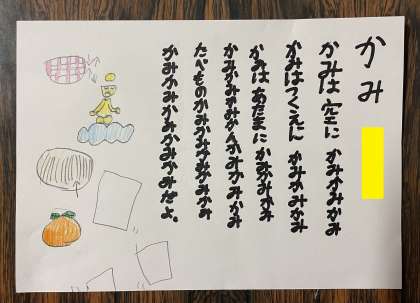 かみ
かみは空に かみかみかみ
かみはつくえに かみかみかみ
かみは あたまに かみかみかみ
かみかみかみかみかみかみかみ
たべものかみかみかみかみかみ
かみかみかみかみかみかみだよ。